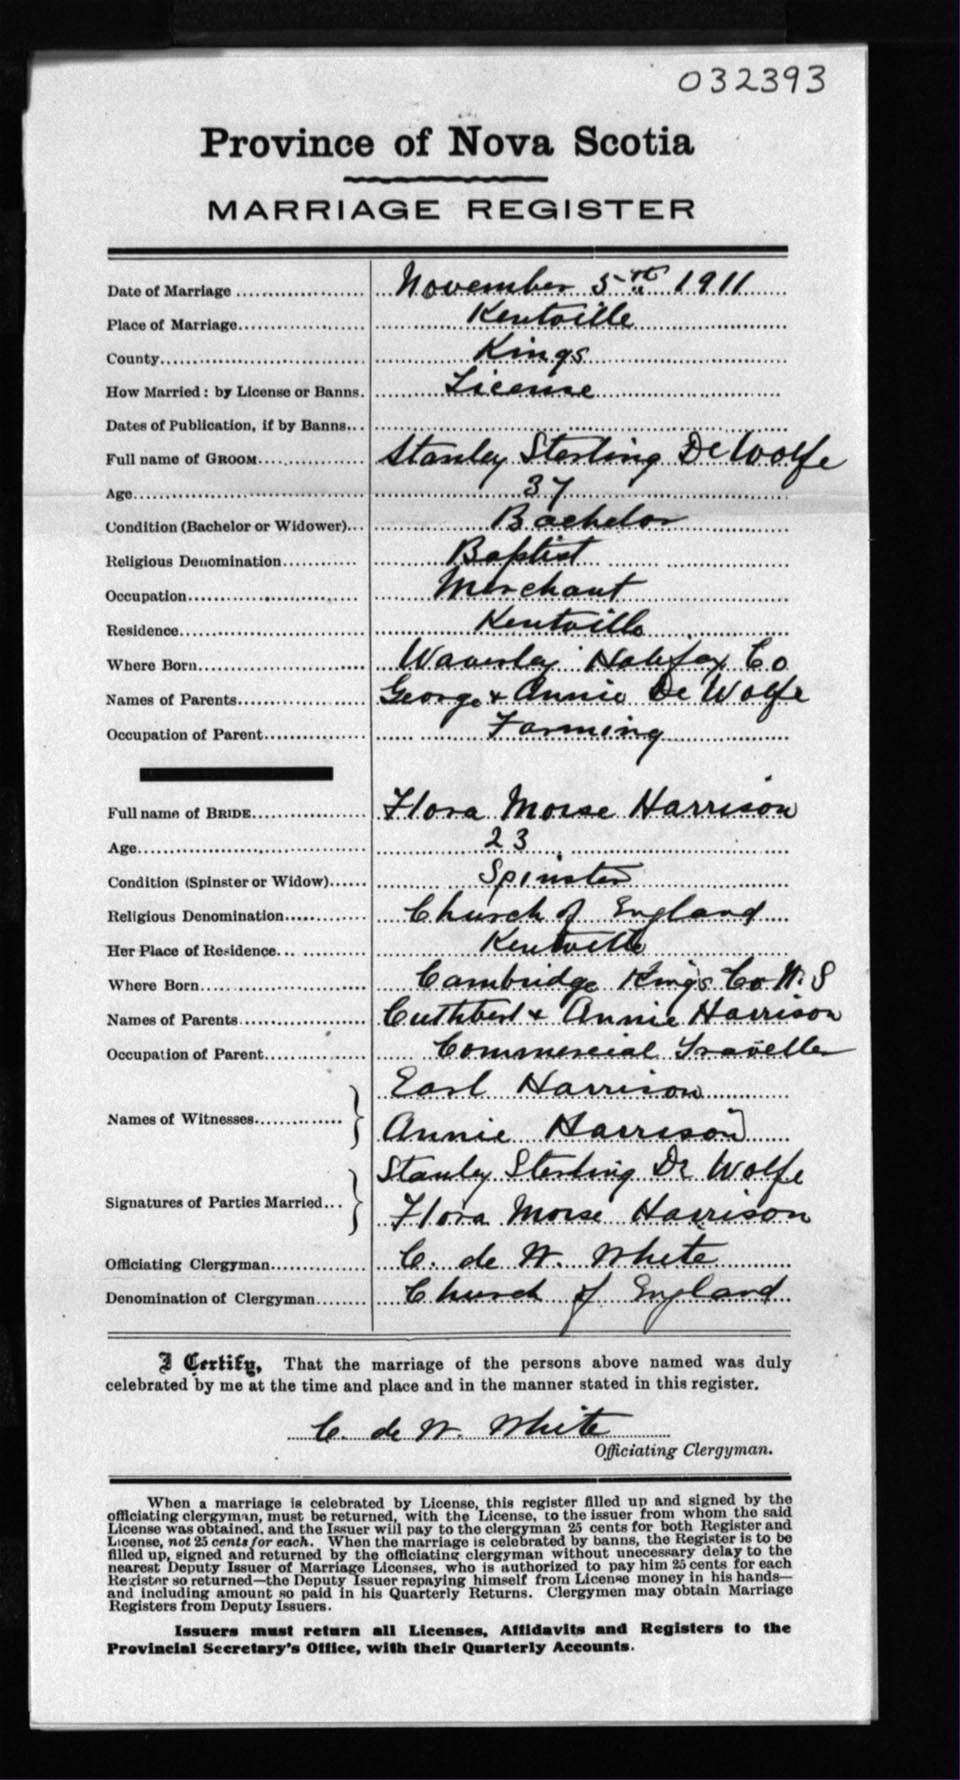 032393
Province of Nova Scotia
MARRIAGE REGISTER
Date of Marriage November 5th 1911
Place of Marriage Kentville
County Kings
How Married: by License or Banns. License
Dates of Publication, if by Banns
Full name of GROOM Stanley Sterling DeWolfe
Age 37
Condition (Bachelor or Widower) Bachelor
Religious Denomination Baptist
Occupation Merchant
Residence Kentville
Where Born Waverley Halifax Co
Names of Parents George & Annie De Wolfe
Occupation of Parent Farming
Full name of BRIDE Flora Morse Harrison
Age 23
Condition (Spinster or Widow) Spinster
Religious Denomination Church of England
Her Place of Residence Kentville
Where Born Cambridge King's Co N.S
Names of Parents Cuthbert & Annie Harrison
Occupation of Parent Commercial Traveller
Names of Witnesses Earl Harrison
Annie Harrison
Signatures of Parties Married Stanley Sterling De Wolfe
Flora Morse Harrison
Officiating Clergyman C. de W. White
Denomination of Clergyman Church of England
I Certify, That the marriage of the persons above named was duly
celebrated by me at the time and place and in the manner stated in this register.
C. de W. White
Officiating Clergyman.
When a marriage is celebrated by License, this register filled up and signed by the
officiating clergyman, must be returned, with the License, to the issuer from whom the said
License was obtained, and the Issuer will pay to the clergyman 25 cents for both Register and
License, not 25 cents for each. When the marriage is celebrated by banns, the Register is to be
filled up, signed and returned by the officiating clergyman without unecessary delay to the
nearest Deputy Issuer of Marriage Licenses, who is authorized to pay him 25 cents for each
Register so returned—the Deputy Issuer repaying himself from License money in his hands—
and including amount so paid in his Quarterly Returns. Clergymen may obtain Marriage
Registers from Deputy Issuers.
Issuers must return all Licenses, Affidavits and Registers to the
Provincial Secretary's Office, with their Quarterly Accounts.